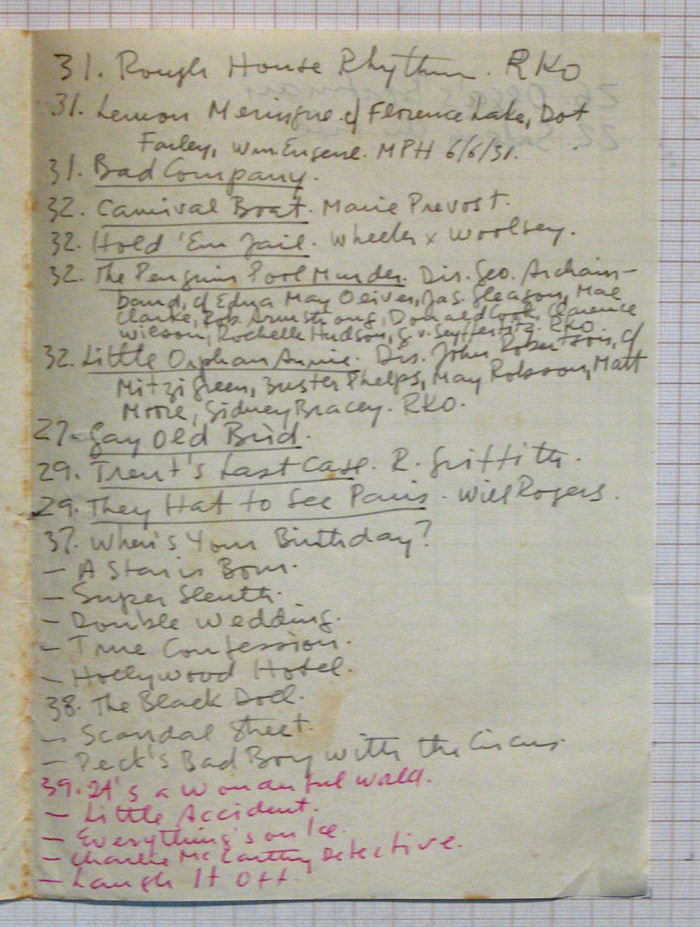 31. Rough House Rhythm. RKO
31. Lemon Meringue c/ Florence Lake, Dot
Farley, Wm. Eugene. MPH 6/6/31.
31. Bad Company.
32. Carnival Boat. Marie Prevost.
32. Hold 'Em Jail. Wheeler x Woolsey.
32. The Penguin Pool Murder. Dir. Geo. Archain-
baud, c/ Edna May Oliver, Jas. Gleason, Mae
Clarke, Rob. Armstrong, Donald Cook, Clarence
Wilson, Rochelle Hudson, G. v. Seyffertitz. RKO.
32. Little Orphan Annie. Dir. John Robertson, c/
Mitzi Green, Buster Phelps, May Robson, Matt
Moore, Sidney Bracey. RKO.
27. Gay Old Bird.
29. Trent's Last Case. R. Griffith.
29. They Hat to See Paris. Will Rogers.
37. When's Your Birthday?
- A Star is Born.
- Super Sleuth.
- Double Wedding.
- True Confession.
- Hollywood Hotel.
38. The Black Doll.
- Scandal Street.
- Peck's Bad Boy with the Circus
39. It's a wonderful world.
- Little Accident.
- Everything's on Ice.
- Charlie McCarthy Detective.
- Laugh It Off.